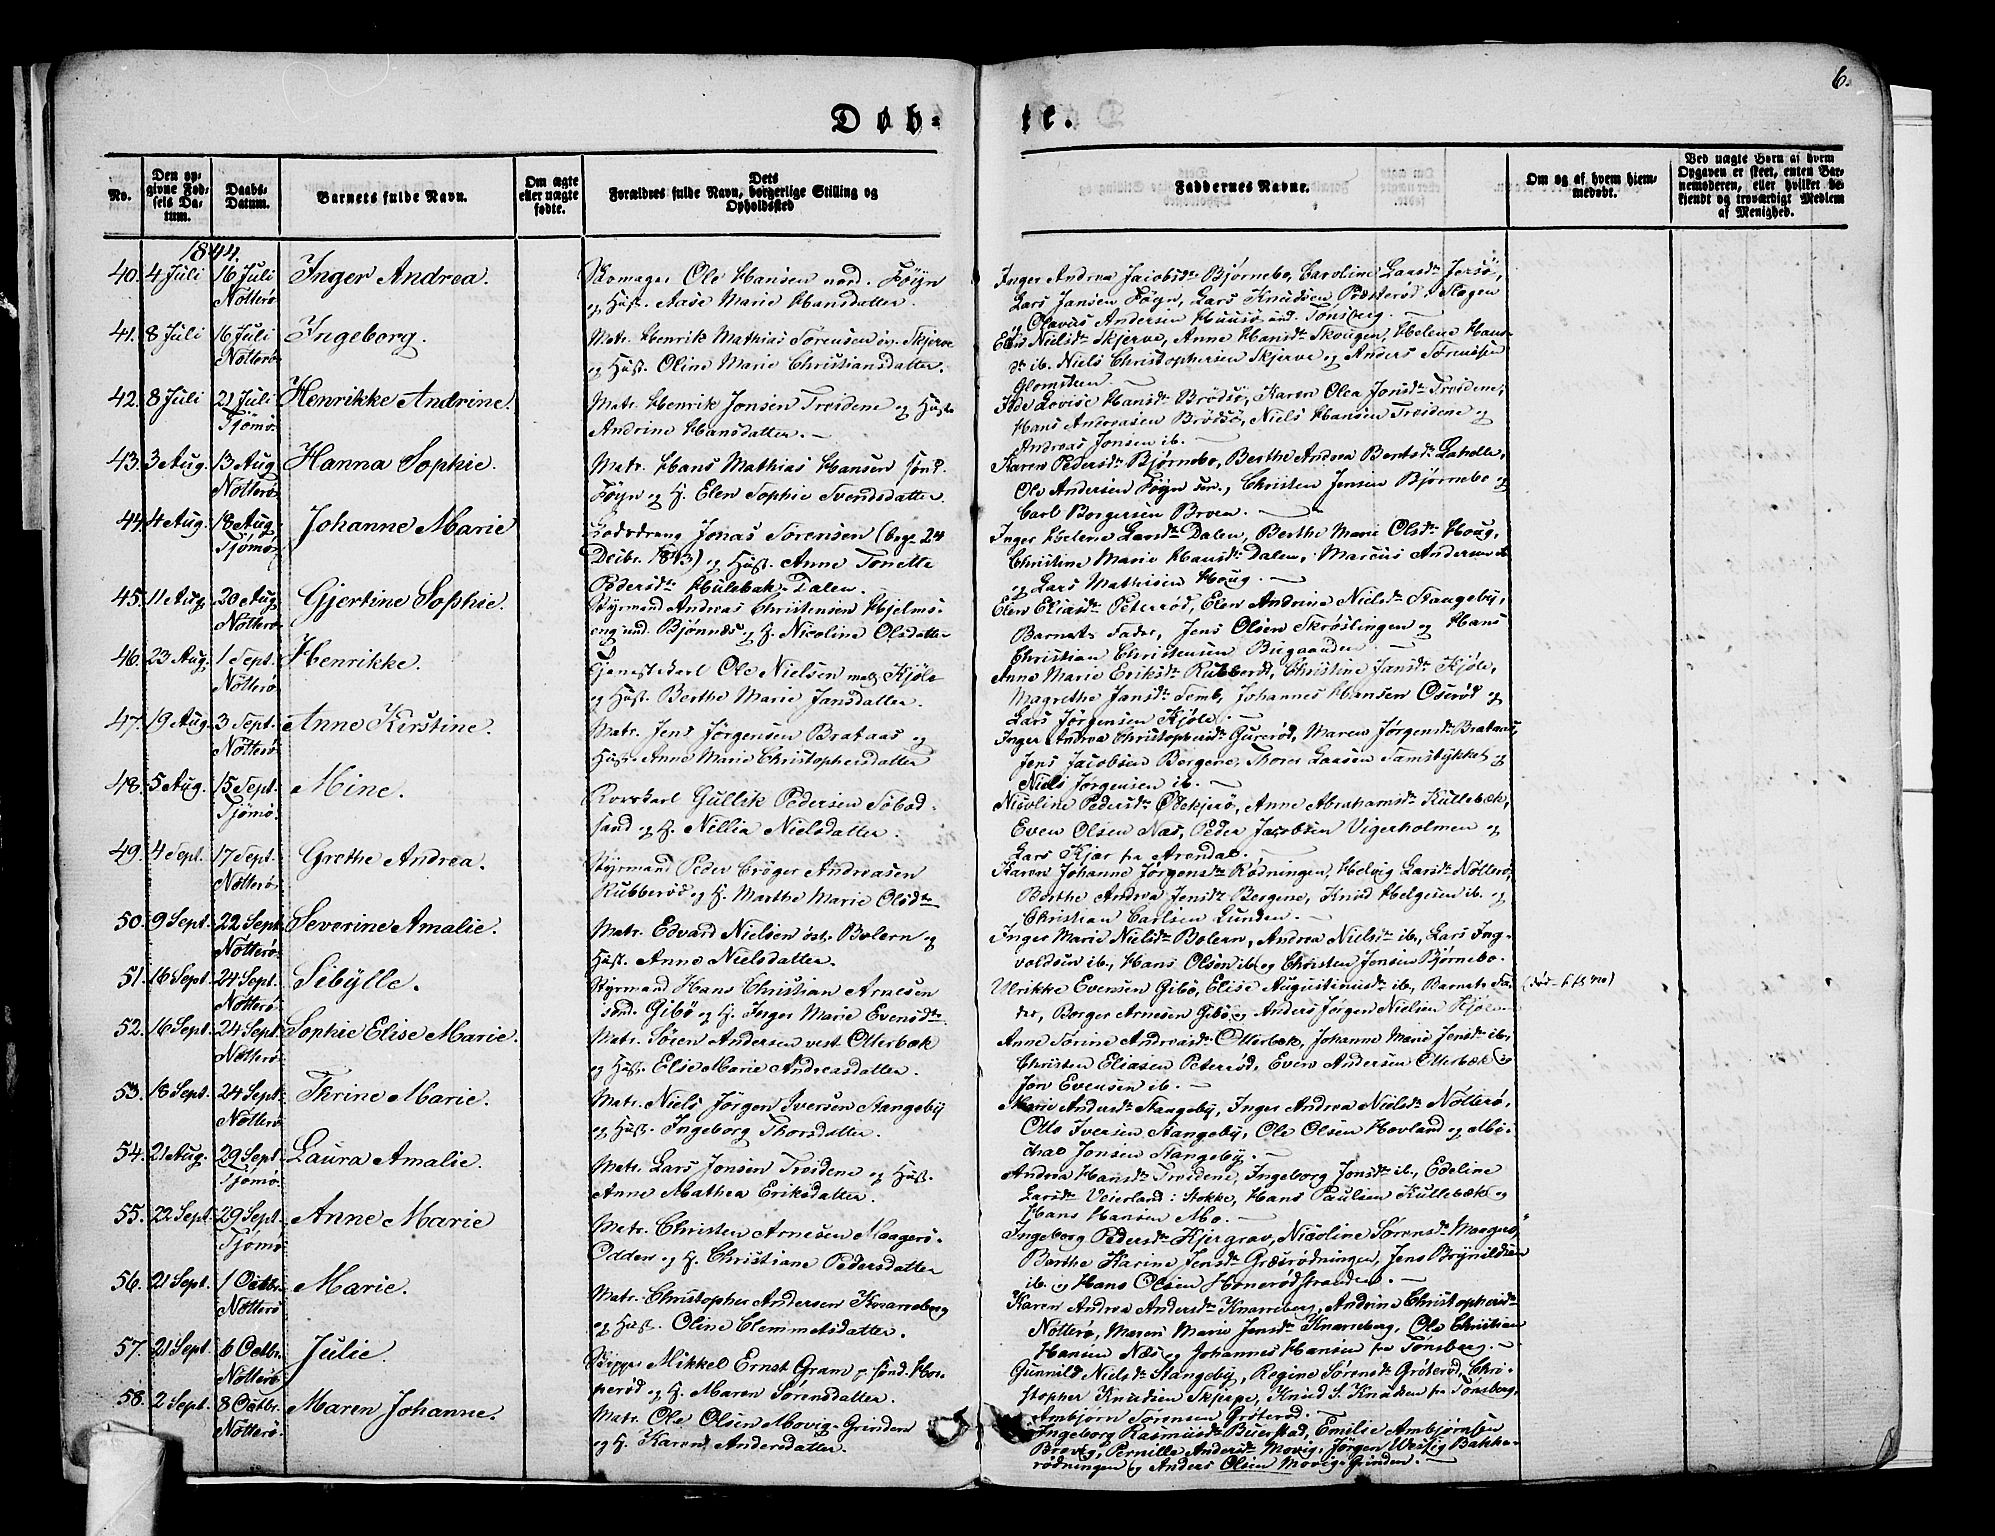 6.
Døb-
te.
No.
Den op-
givne Fød-
sels Da-
tum.
Daabs-
Datum.
Barnets fulde Navn.
Om ægte
eller uægte
fødte.
Dets
Forældres fulde Navn, borgerlige Stilling og
Opholdssted
Faddernes Navne.
Om og af hvem hjem-
medøbt.
Ved uægte Børn af hvem
Opgaven er skeet, enten Bar-
nemoderen, eller hvilket be-
kjendt og troværdigt Medlem
af Menighed.
1844.
40. 4 Juli 16 Juli Nötterö Inger Andrea.
Skomager Ole Hansen nord. Föyn
og Hust. Aase Marie Hansdatter.
Inger Andrea Jacobsdr Björnebo, Caroline Larsdr Jersö,
Lars Jansen Föyn, Lars Knudsen Præsterød i Slagen
og Olavus Andersen Huusö und. Tönsberg.
41. 8 Juli 16 Juli Nötterö Ingeborg.
Matr. Henrik Mathias Sörensen öv. Skjerve
og Hust. Oline Marie Christiansdatter.
Nielsdr Skjerve, Anne Hansdr Skougen, Helene Hans-
dr ib. Niels Christophersen Skjerve og Anders Sörensen
Glomsteen.
42. 8 Juli 21 Juli Tjömö Henrikke Andrine.
Matr. Henrik Jonsen Treidene og Hust.
Andrine Hansdatter.
Lovise Hansdr Brödsö, Karen Olea Jonsdr Treidene,
Hans Andreasen Brödsö, Niels Hansen Treidene og
Andreas Jonsen ib.
43. 3 Aug. 13 Aug Nötterö Hanna Sophie.
Matr. Hans Mathias Hansen sönd.
Föyn og H. Elen Sophie Svendsdatter.
Karen Pedersdr Björnebo, Berthe Andrea Berntsdr Laholle,
Ole Andersen Föyn sön., Christen Jensen Björnebo og
Carl Borgersen Broen.
44. 4 Aug. 18 Aug, Tjömö Johanne Marie
Lodsdreng Jonas Sörensen (beg. 24
Decbr. 1843) og Hust. Anne Tonette
Pedersdr Hulebak-Dalen.
Inger Helene Larsdr Dalen, Berthe Marie Olsdr Houg,
Christine Marie Hansdr Dalen, Marcus Andersen ib
og Lars Mathisen Houg.
45. 11 Aug. 20 Aug Nötterö Gjertine Sophie.
Styrmand Andreas Christensen Hjelms-
eng und. Bjönnes og H. Nicoline Olsdatter
Elen Eliasdr Peterröd, Elen Andrine Nielsdr Stangeby,
Barnets Fader, Jens Olsen Skröslingen og Hans
Christian Christensen Buegaarden.
46. 23 Aug. 1 Sept. Nötterö Henrikke.
Tjenestekarl Ole Nielsen mell. Kjöle
og Hust. Berthe Marie Jansdatter.
Anne Marie Eriksdr Rubberød, Christine Jansdr Kjöle,
Magrethe Jansdr Semb, Johannes Hansen Oseröd og
Lars Jörgensen Kjöle.
47. 19 Aug. 3 Sept. Nötterö Anne Kirstine.
Matr. Jens Jörgensen Brataas og
Hust. Anne Marie Christophersdatter
Inger Andrea Christophersdr Gureröd, Maren Jörgensdr Brataas,
Jens Jacobsen Bergene, Thorer Larsen Samstykket og
Niels Jörgensen ib.
48. 5 Aug. 15 Sept. Tjömö. Mine.
Rorskarl Gullik Pedersen Sebod-
sand og H. Nillia Nielsdatter.
Nicoline Pedersdr Ødekjerö, Anne Abrahamsdr Kullebæk,
Even Olsen Næs, Peder Jacobsen Vigerholmen og
Lars Kjær fra Arendal.
49. 4 Sept. 17 Sept. Nötterö Grethe Andrea.
Styrmand Peder Cröger Andreasen
Rubberöd og H. Marthe Marie Olsdtr
Karen Johanne Jörgensdr Rödningen, Helvig Larsdr Nötterö,
Berthe Andrea Jensdr Bergene, Knud Helgesen ib. og
Christian Carlsen Lunden.
50. 9 Sept. 22 Sept. Nötterö. Severine Amalie.
Matr. Edvard Nielsen öst. Bolern og
Hust. Anne Nielsdatter.
Inger Marie Nielsdr Bolern, Andrea Nielsdr ib., Lars Ing-
voldsen ib., Hans Olsen ib. og Christen Jensen Björnebo.
51. 16 Sept 24 Sept. Nötterö Sibylle.
Styrmand Hans Christian Arnesen
sönd. Gibö og H. Inger Marie Evensdtr
Ulrikke Evensen Gibö, Elise Augustinusdr ib, Barnets Fa-
der, Borger Arnesen Gibö og Anders Jörgen Nielsen Kjöle.
52. 16 Sept. 24 Sept. Nötterö Sophie Elise Marie.
Matr. Sören Andersen vest. Otterbæk
og Hust. Else Marie Andreasdatter.
Anne Sörine Andreasdr Otterbæk, Johanne Marie Jensdr ib.,
Christen Eliasen Peterröd, Even Andersen Otterbæk og
Jon Evensen ib.
53. 18 Sept. 24 Sept. Nötterö Thrine Marie.
Matr. Niels Jörgen Iversen Stangeby
og Hust. Ingeborg Thorsdatter.
Marie Andersdr Stangeby, Inger Andrea Nielsdr Nötterö,
Otto Iversen Stangeby, Ole Olsen Hovland og Mi-
chael Jonsen Stangeby.
54. 21 Aug. 29 Sept. Tjömö Laura Amalie.
Matr. Lars Jonsen Treidene og Hust.
Anne Mathea Eriksdatter.
Andrea Hansdr Treidene, Ingeborg Jonsdr ib., Edeline
Larsdr Veierland i Stokke, Hans Paulsen Kullebæk og
Hans Hansen Mo.
55. 22 Sept. 29 Sept. Tjömö Anne Marie
Matr. Christen Arnesen Maagerö-
Odden og H. Christiane Pedersdatter
Ingeborg Pedersdr Kjergrav, Nicoline Sörensdr Maagerö,
Berthe Karine Jensdr Græsrödningen, Jens Brynildsen
ib. og Hans Olsen Honerödstranden.
56. 21 Sept. 1 Octbr. Nötterö Marie.
Matr. Christopher Andersen Knarreberg
og Hust. Oline Clemmetsdatter.
Karen Andrea Andersdr Knarreberg, Andrine Christophersdr
Nötterö, Maren Marie Jensdr Knarreberg, Ole Christian
Hansen Næs og Johannes Hansen fra Tönsberg.
57. 21 Sept. 6 Octbr. Nötterö Julie.
Skipper Mikkel Ernst Gram p. sönd. Hor-
peröd og H. Maren Sörensdatter.
Gunnild Nielsdr Stangeby, Regine Sörensdr Gröteröd, Chri-
stopher Knudsen Skjerpe, Knud S. Knudsen fra Tönsberg,
Ambjörn Sörensen Gröteröd.
58. 2 Sept. 8 Octbr. Nötterö. Maren Johanne.
Matr. Ole Olsen Movig-Grinden
og H. Karen Andersdatter.
Ingeborg Rasmusdr Buerstad, Emilie Ambjörnsen
Brevig, Pernille Andersdr Movig, Jörgen Bakke-
rödningen og Anders Olsen Movig-Grinden.